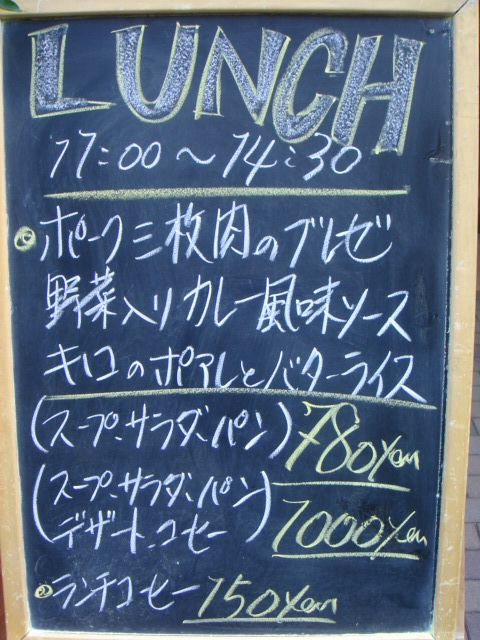 LUNCH
11:00～14:30
ポーク三枚肉のブレゼ
野菜入りカレー風味ソース
キロコのポアレとバターライス
(スープ、サラダ、パン) 780yen
(スープ、サラダ、パン
デザート、コーヒー) 1000yen
ランチコーヒー 150yen